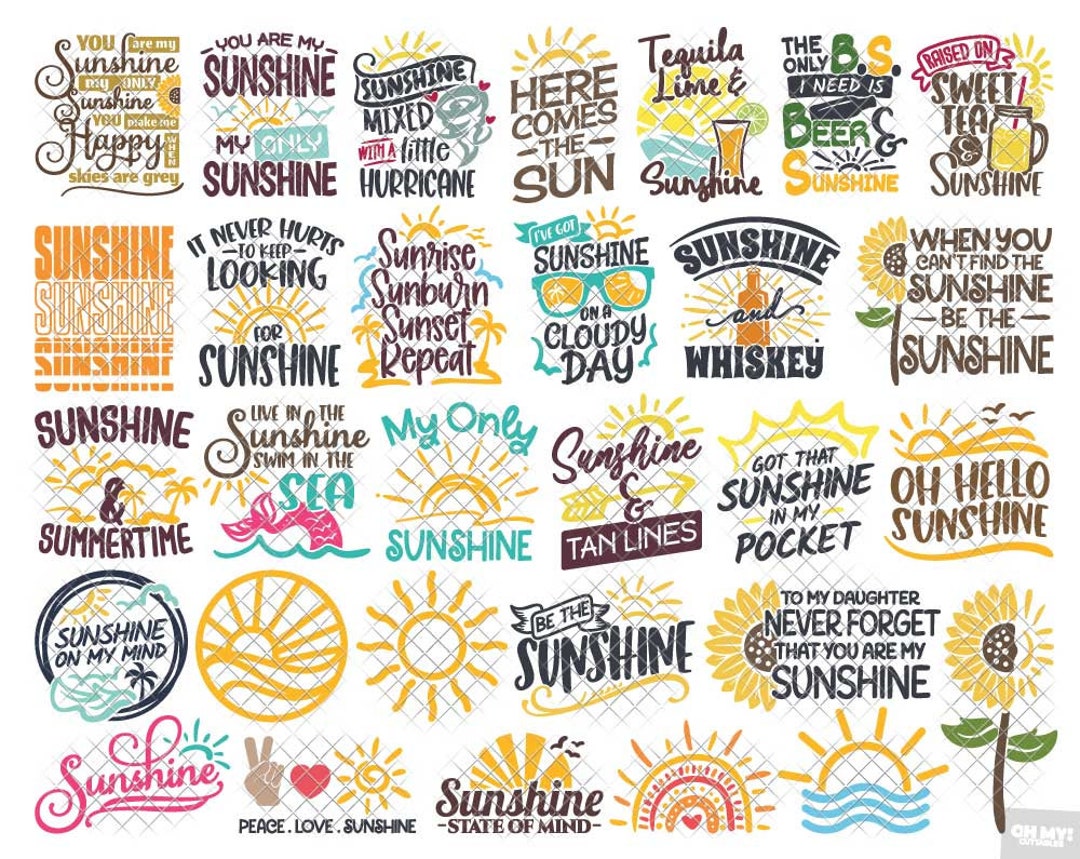 YOU are my
Sunshine
my ONLY
Sunshine
YOU make me
Happy WHEN
skies are grey
YOU ARE MY
SUNSHINE
MY ONLY
SUNSHINE
SUNSHINE
MIXED
WITH A little
HURRICANE
HERE
COMES
THE
SUN
Tequila
Lime &
Sunshine
THE ONLY B.S.
I NEED IS
BEER &
SUNSHINE
RAISED ON
SWEET
TEA
&
SUNSHINE
SUNSHINE
SUNSHINE
SUNSHINE
SUNSHINE
SUNSHINE
IT NEVER HURTS
TO KEEP
LOOKING
FOR
SUNSHINE
Sunrise
Sunburn
Sunset
Repeat
I'VE GOT
SUNSHINE
ON A
CLOUDY
DAY
SUNSHINE
and
WHISKEY
WHEN YOU
CAN'T FIND THE
SUNSHINE
BE THE
SUNSHINE
SUNSHINE
&
SUMMERTIME
LIVE IN THE
Sunshine
SWIM IN THE
SEA
My Only
SUNSHINE
Sunshine
&
TAN LINES
GOT THAT
SUNSHINE
IN MY
POCKET
OH HELLO
SUNSHINE
SUNSHINE
ON MY MIND
BE THE
SUNSHINE
TO MY DAUGHTER
NEVER FORGET
THAT YOU ARE MY
SUNSHINE
Sunshine
PEACE . LOVE . SUNSHINE
Sunshine
-STATE OF MIND-
OH MY!
CUTTABLES